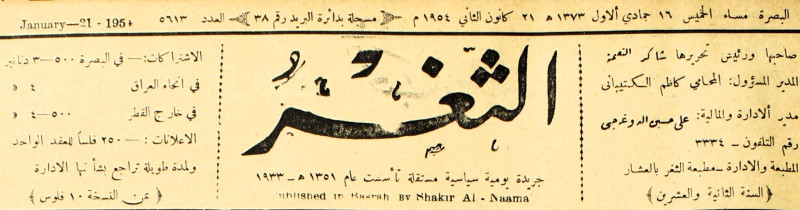 البصرة مساء الخميس ١٦ جمادي الاول ١٣٧٣ ه ٢١ كانون الثاني ١٩٥٤ م مسجلة بدائرة البريد رقم ٣٨ العدد ٥٦١٣ January—21 - 1954
صاحبها ورئيس تحريرها شاكر النعمة
المدير المسؤول: المحامي كاظم الكتيباني
مدير الادارة والمالية: علي حسين الدوغجي
رقم التلفون – ٣٣٣٤
المطبعة والادارة – مطبعة الثغر بالعشار
﴿ السنة الثانية والعشرين ﴾
الثغر
جريدة يومية سياسية مستقلة تأسست عام ١٣٥١ هـ – ١٩٣٣
Published in Basrah By Shakir Al - Naama
الاشتراكات:— في البصرة ٥٠٠—٣ دنانير
في انحاء العراق ٤ »
في خارج القطر ٥٠٠—٤ »
الاعلانات :— ٢٥٠ فلساً للعقد الواحد
ولمدة طويلة تراجع بشأنها الادارة
﴿ ثمن النسخة ١٠ فلوس ﴾